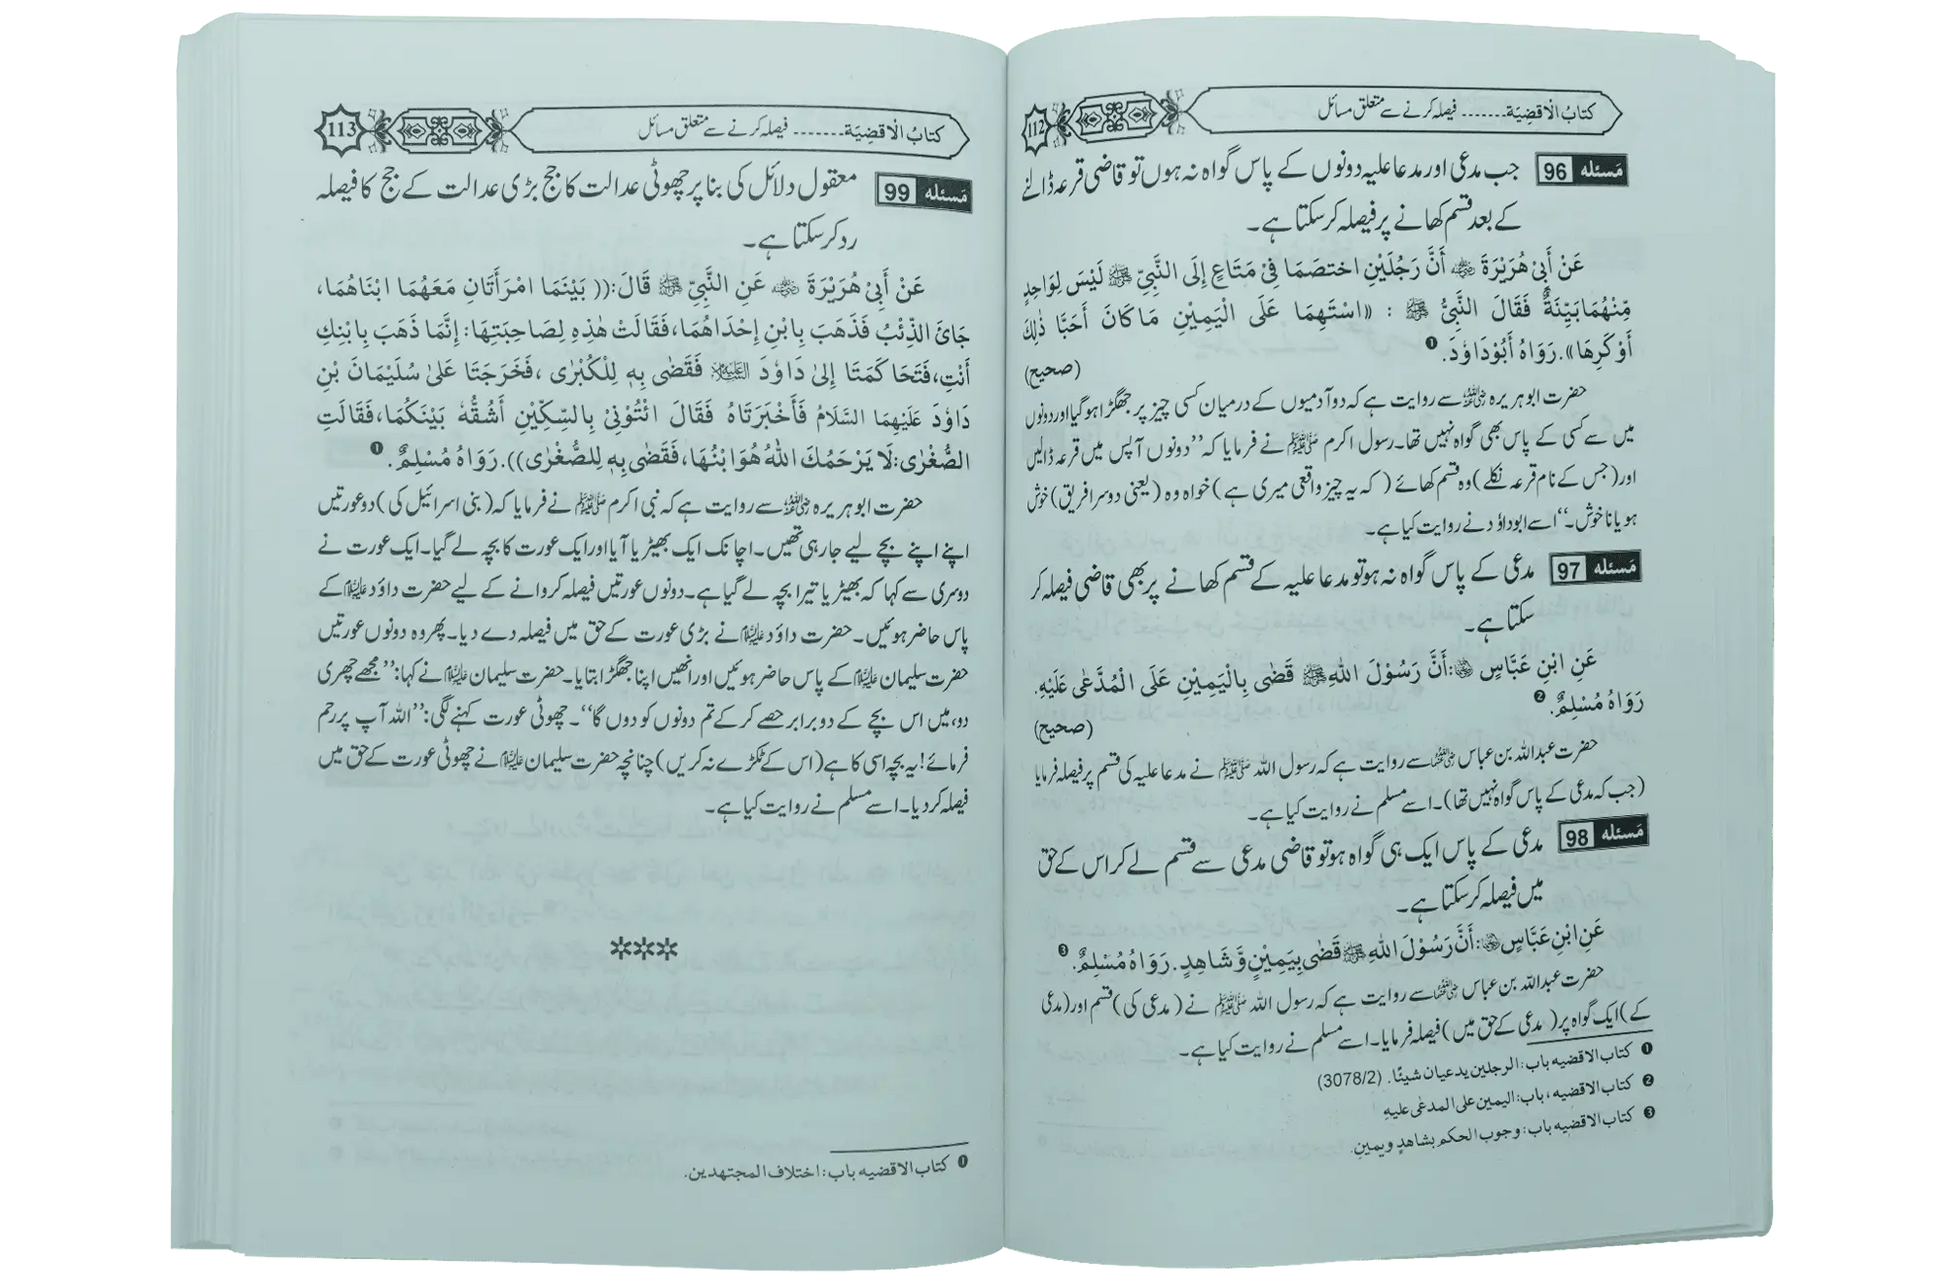 كتابُ الْاقضِيَة....... فیصلہ کرنے سے متعلق مسائل
112
مَسئله 96 جب مدعی اور مدعا علیہ دونوں کے پاس گواہ نہ ہوں تو قاضی قرعہ ڈالنے
کے بعد قسم کھانے پر فیصلہ کرسکتا ہے۔
عَنْ أَبِیْ هُرَيْرَةَ ﷜ أَنَّ رَجُلَيْنِ اخْتَصَمَا فِیْ مَتَاعٍ إِلَی النَّبِیِّ ﷺ لَيْسَ لِوَاحِدٍ
مِّنْهُمَا بَيِّنَةٌ فَقَالَ النَّبِیُّ ﷺ : «اسْتَهِمَا عَلَی الْيَمِيْنِ مَا كَانَ أَحَبَّا ذٰلِكَ
أَوْ كَرِهَا». رَوَاهُ أَبُوْدَاوٗدَ. ❶
(صحیح)
حضرت ابو ہریرہ ﷜ سے روایت ہے کہ دو آدمیوں کے درمیان کسی چیز پر جھگڑا ہوگیا اور دونوں
میں سے کسی کے پاس بھی گواہ نہیں تھا۔ رسول اکرم ﷺ نے فرمایا کہ ’’دونوں آپس میں قرعہ ڈالیں
اور (جس کے نام قرعہ نکلے) وہ قسم کھائے ( کہ یہ چیز واقعی میری ہے ) خواہ وہ (یعنی دوسرا فریق) خوش
ہو یا ناخوش۔‘‘ اسے ابوداوٗد نے روایت کیا ہے۔
مَسئله 97 مدعی کے پاس گواہ نہ ہو تو مدعا علیہ کے قسم کھانے پر بھی قاضی فیصلہ کر
سکتا ہے۔
عَنِ ابْنِ عَبَّاسٍ ﷠: أَنَّ رَسُوْلَ اللهِ ﷺ قَضٰی بِالْيَمِيْنِ عَلَی الْمُدَّعٰی عَلَيْهِ.
رَوَاهُ مُسْلِمٌ. ❷
(صحیح)
حضرت عبداللہ بن عباس ﷠ سے روایت ہے کہ رسول اللہ ﷺ نے مدعا علیہ کی قسم پر فیصلہ فرمایا
(جب کہ مدعی کے پاس گواہ نہیں تھا)۔ اسے مسلم نے روایت کیا ہے۔
مَسئله 98 مدعی کے پاس ایک ہی گواہ ہو تو قاضی مدعی سے قسم لے کر اس کے حق
میں فیصلہ کرسکتا ہے۔
عَنِ ابْنِ عَبَّاسٍ ﷠: أَنَّ رَسُوْلَ اللهِ ﷺ قَضٰی بِيَمِيْنٍ وَّشَاهِدٍ. رَوَاهُ مُسْلِمٌ. ❸
حضرت عبداللہ بن عباس ﷠ سے روایت ہے کہ رسول اللہ ﷺ نے ( مدعی کی ) قسم اور (مدعی
کے) ایک گواہ پر ( مدعی کے حق میں ) فیصلہ فرمایا۔ اسے مسلم نے روایت کیا ہے۔
❶ کتاب الاقضیه باب: الرجلین یدعیان شیئًا. (3078/2)
❷ کتاب الاقضیه، باب: الیمین علی المدعٰی علیهِ
❸ کتاب الاقضیه باب: وجوب الحکم بشاهدٍ ویمینٍ.
كتابُ الْاقضِيَة....... فیصلہ کرنے سے متعلق مسائل
113
مَسئله 99 معقول دلائل کی بنا پر چھوٹی عدالت کا جج بڑی عدالت کے جج کا فیصلہ
رد کرسکتا ہے۔
عَنْ أَبِیْ هُرَيْرَةَ ﷜ عَنِ النَّبِیِّ ﷺ قَالَ: (( بَيْنَمَا امْرَأَتَانِ مَعَهُمَا ابْنَاهُمَا،
جَائَ الذِّئْبُ فَذَهَبَ بِابْنِ إِحْدَاهُمَا، فَقَالَتْ هٰذِهٖ لِصَاحِبَتِهَا: إِنَّمَا ذَهَبَ بِابْنِكِ
أَنْتِ، فَتَحَاكَمَتَا إِلیٰ دَاوٗدَ عَلَيْهِ السَّلَام فَقَضٰی بِهٖ لِلْكُبْرٰی ، فَخَرَجَتَا عَلیٰ سُلَيْمَانَ بْنِ
دَاوٗدَ عَلَيْهِمَا السَّلَامُ فَأَخْبَرَتَاهُ فَقَالَ ائْتُوْنِیْ بِالسِّكِّيْنِ أَشُقُّهُ بَيْنَكُمَا، فَقَالَتِ
الصُّغْرٰی: لَا يَرْحَمُكَ اللهُ هُوَ ابْنُهَا، فَقَضٰی بِهٖ لِلصُّغْرٰی)). رَوَاهُ مُسْلِمٌ. ❶
حضرت ابو ہریرہ ﷜ سے روایت ہے کہ نبی اکرم ﷺ نے فرمایا کہ (بنی اسرائیل کی) دو عورتیں
اپنے اپنے بچے لیے جارہی تھیں۔ اچانک ایک بھیڑیا آیا اور ایک عورت کا بچہ لے گیا۔ ایک عورت نے
دوسری سے کہا کہ بھیڑیا تیرا بچہ لے گیا ہے۔ دونوں عورتیں فیصلہ کروانے کے لیے حضرت داوٗد علیہ السلام کے
پاس حاضر ہوئیں۔ حضرت داوٗد علیہ السلام نے بڑی عورت کے حق میں فیصلہ دے دیا۔ پھر وہ دونوں عورتیں
حضرت سلیمان علیہ السلام کے پاس حاضر ہوئیں اور انھیں اپنا جھگڑا بتایا۔ حضرت سلیمان علیہ السلام نے کہا: ’’مجھے چھری
دو، میں اس بچے کے دو برابر حصے کرکے تم دونوں کو دوں گا‘‘۔ چھوٹی عورت کہنے لگی: ’’اللہ آپ پر رحم
فرمائے! یہ بچہ اسی کا ہے (اس کے ٹکڑے نہ کریں) چنانچہ حضرت سلیمان علیہ السلام نے چھوٹی عورت کے حق میں
فیصلہ کردیا۔ اسے مسلم نے روایت کیا ہے۔
***
❶ کتاب الاقضیه باب: اختلاف المجتهدین.